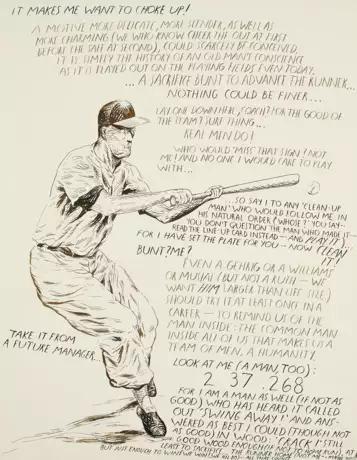 IT MAKES ME WANT TO CHOKE UP!
A MOTIVE MORE DELICATE, MORE SLENDER, AS WELL AS
MORE CHARMING (WE WHO KNOW CHEER THE OUT AT FIRST
BEFORE THE SAFE AT SECOND), COULD SCARCELY BE CONCEIVED.
IT IS SIMPLY THE HISTORY OF AN OLD MAN'S CONSCIENCE
AS IT IS PLAYED OUT ON THE PLAYING FIELDS EVEN TODAY.
... A SACRIFICE BUNT TO ADVANCE THE RUNNER...
NOTHING COULD BE FINER...
LAY ONE DOWN HERE, COACH? FOR THE GOOD OF
THE TEAM? SURE THING...
REAL MEN DO!
WHO WOULD 'MISS' THAT SIGN? NOT
ME! AND NO ONE I WOULD CARE TO PLAY
WITH...
...SO SAY I TO ANY 'CLEAN-UP
MAN' WHO WOULD FOLLOW ME IN
HIS NATURAL ORDER (WHOSE? YOU SAY–
YOU DON'T QUESTION THE MAN WHO MADE IT–
READ THE LINE-UP CARD INSTEAD–AND PLAY IT)...
FOR I HAVE SET THE PLATE FOR YOU – NOW CLEAN
IT!
BUNT? ME?
EVEN A GEHRIG OR A WILLIAMS
OR MUSIAL (BUT NOT A RUTH – WE
WANT HIM LARGER THAN LIFE SIZE)
SHOULD TRY IT AT LEAST ONCE IN A
CAREER – TO REMIND US OF THE
MAN INSIDE: THE COMMON MAN
INSIDE ALL OF US THAT MAKES US A
TEAM OF MEN, A HUMANITY.
TAKE IT FROM
A FUTURE MANAGER...
LOOK AT ME (A MAN, TOO):
2 37 .268
FOR I AM A MAN AS WELL (IF NOT AS
GOOD) WHO HAS HEARD IT CALLED
OUT 'SWING AWAY!' AND ANS-
WERED AS BEST I COULD (THOUGH NOT
AS GOOD) IN WOOD: CRACK! STILL
GOOD WOOD ENOUGH
LEAST TO SACRIFICE THE RUNNER HOME
BUT NOT ENOUGH TO